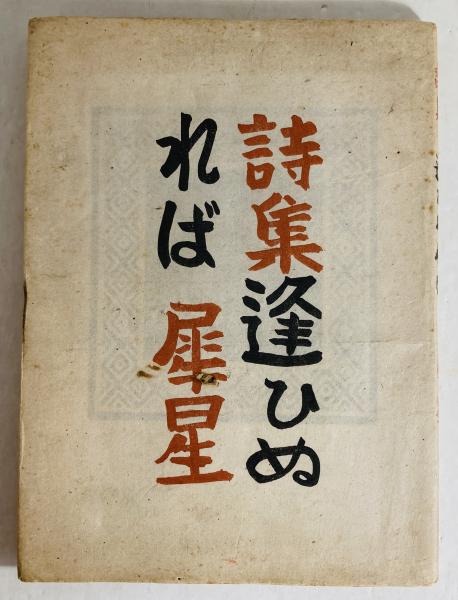 詩集逢ひぬ
れば 犀星